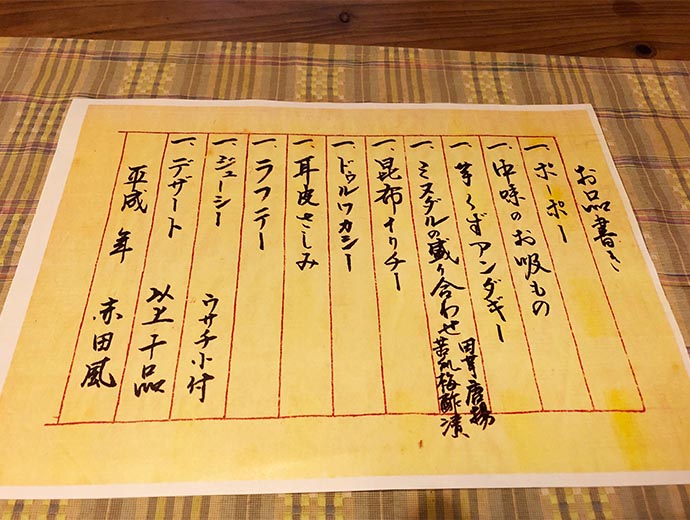 お品書き
一、ポーポー
一、中味のお吸もの
一、芋くずアンダギー
一、ミヌダルの盛り合わせ 田芋唐揚 苦瓜梅酢漬
一、昆布イリチー
一、ドゥルワカシー
一、耳皮さしみ
一、ラフテー
一、ジューシー ウサチ小付
一、デザート 以上十品
平成 年 赤田風